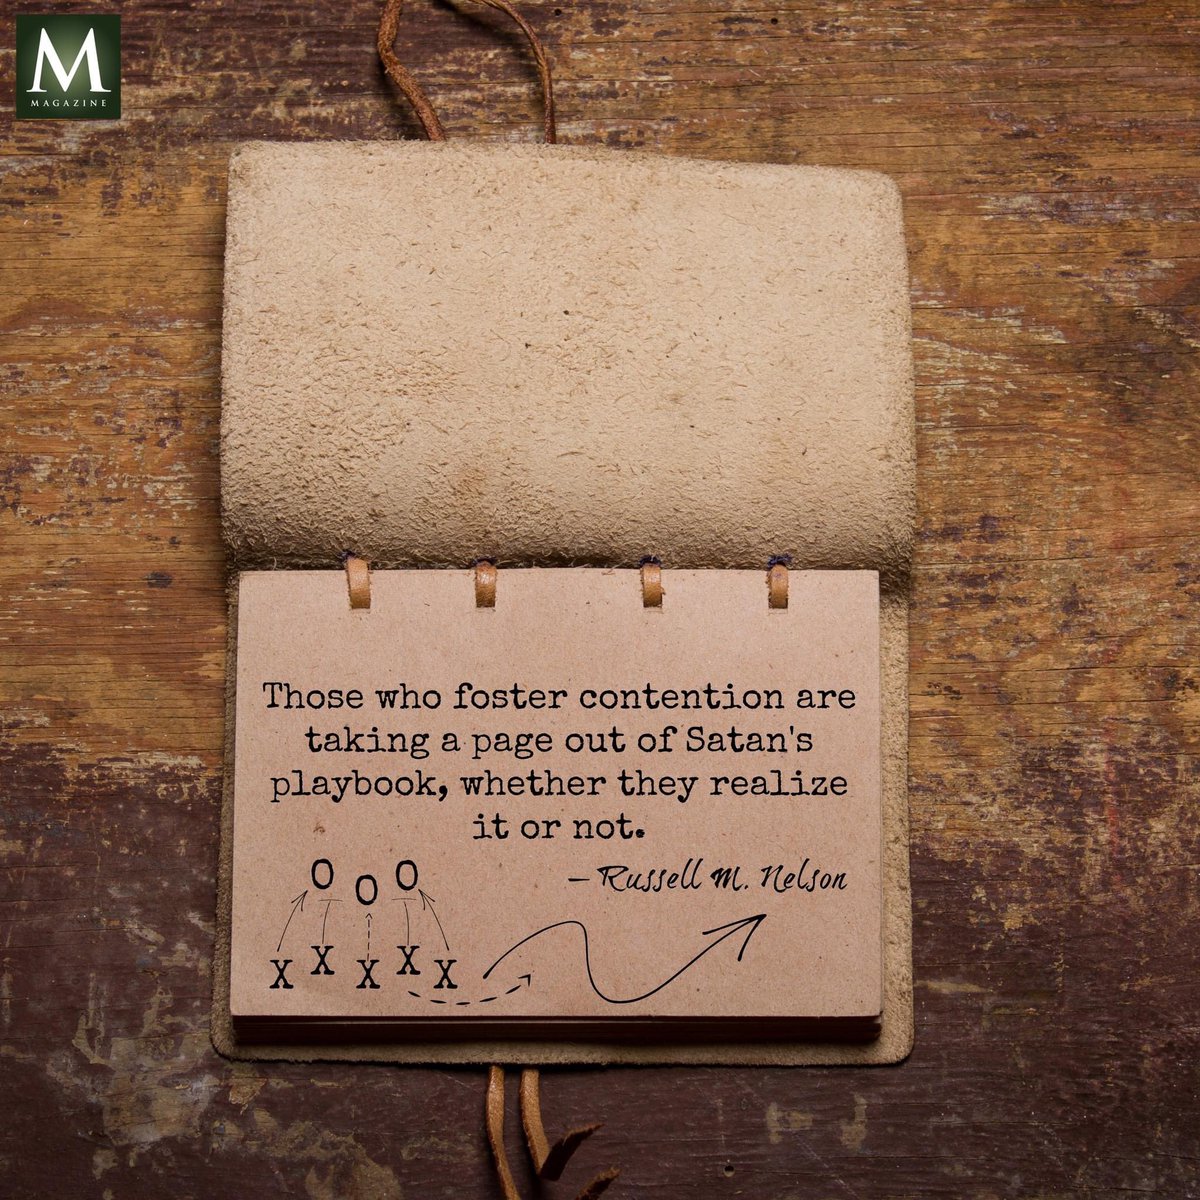 M
MAGAZINE
Those who foster contention are
taking a page out of Satan's
playbook, whether they realize
it or not.
– Russell M. Nelson
O O O
X X X X X